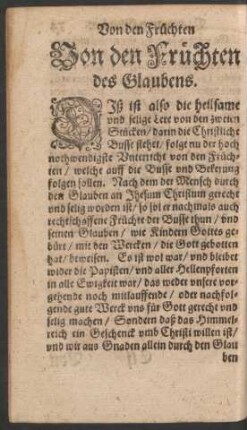 Von den Früchten
Von den Früchten
des Glaubens.
DIß ist also die heilsame
vnd selige Lere von den zweien
Stücken / darin die Christliche
Busse stehet / folgt nu der hoch
nothwendigste Vnterricht von den Früch-
ten / welche auff die Busse vnd Bekerung
folgen sollen. Nach dem der Mensch durch
den Glauben an Jhesum Christum gerecht
vnd selig worden ist / so sol er nachmals auch
rechtschaffene Früchte der Busse thun / vnd
seinen Glauben / wie Kindern Gottes ge-
bürt / mit den Wercken / die Gott gebotten
hat / beweisen. Es ist wol war / vnd bleibet
wider die Papisten / vnd aller Hellenpforten
in alle Ewigkeit war / das weder vnsere vor-
gehende noch mitlauffende / oder nachfol-
gende gute Werck vns für Gott gerecht vnd
selig machen / Sondern daß das Himmel-
reich ein Geschenck vmb Christi willen ist /
vnd wir aus Gnaden allein durch den Glau
ben